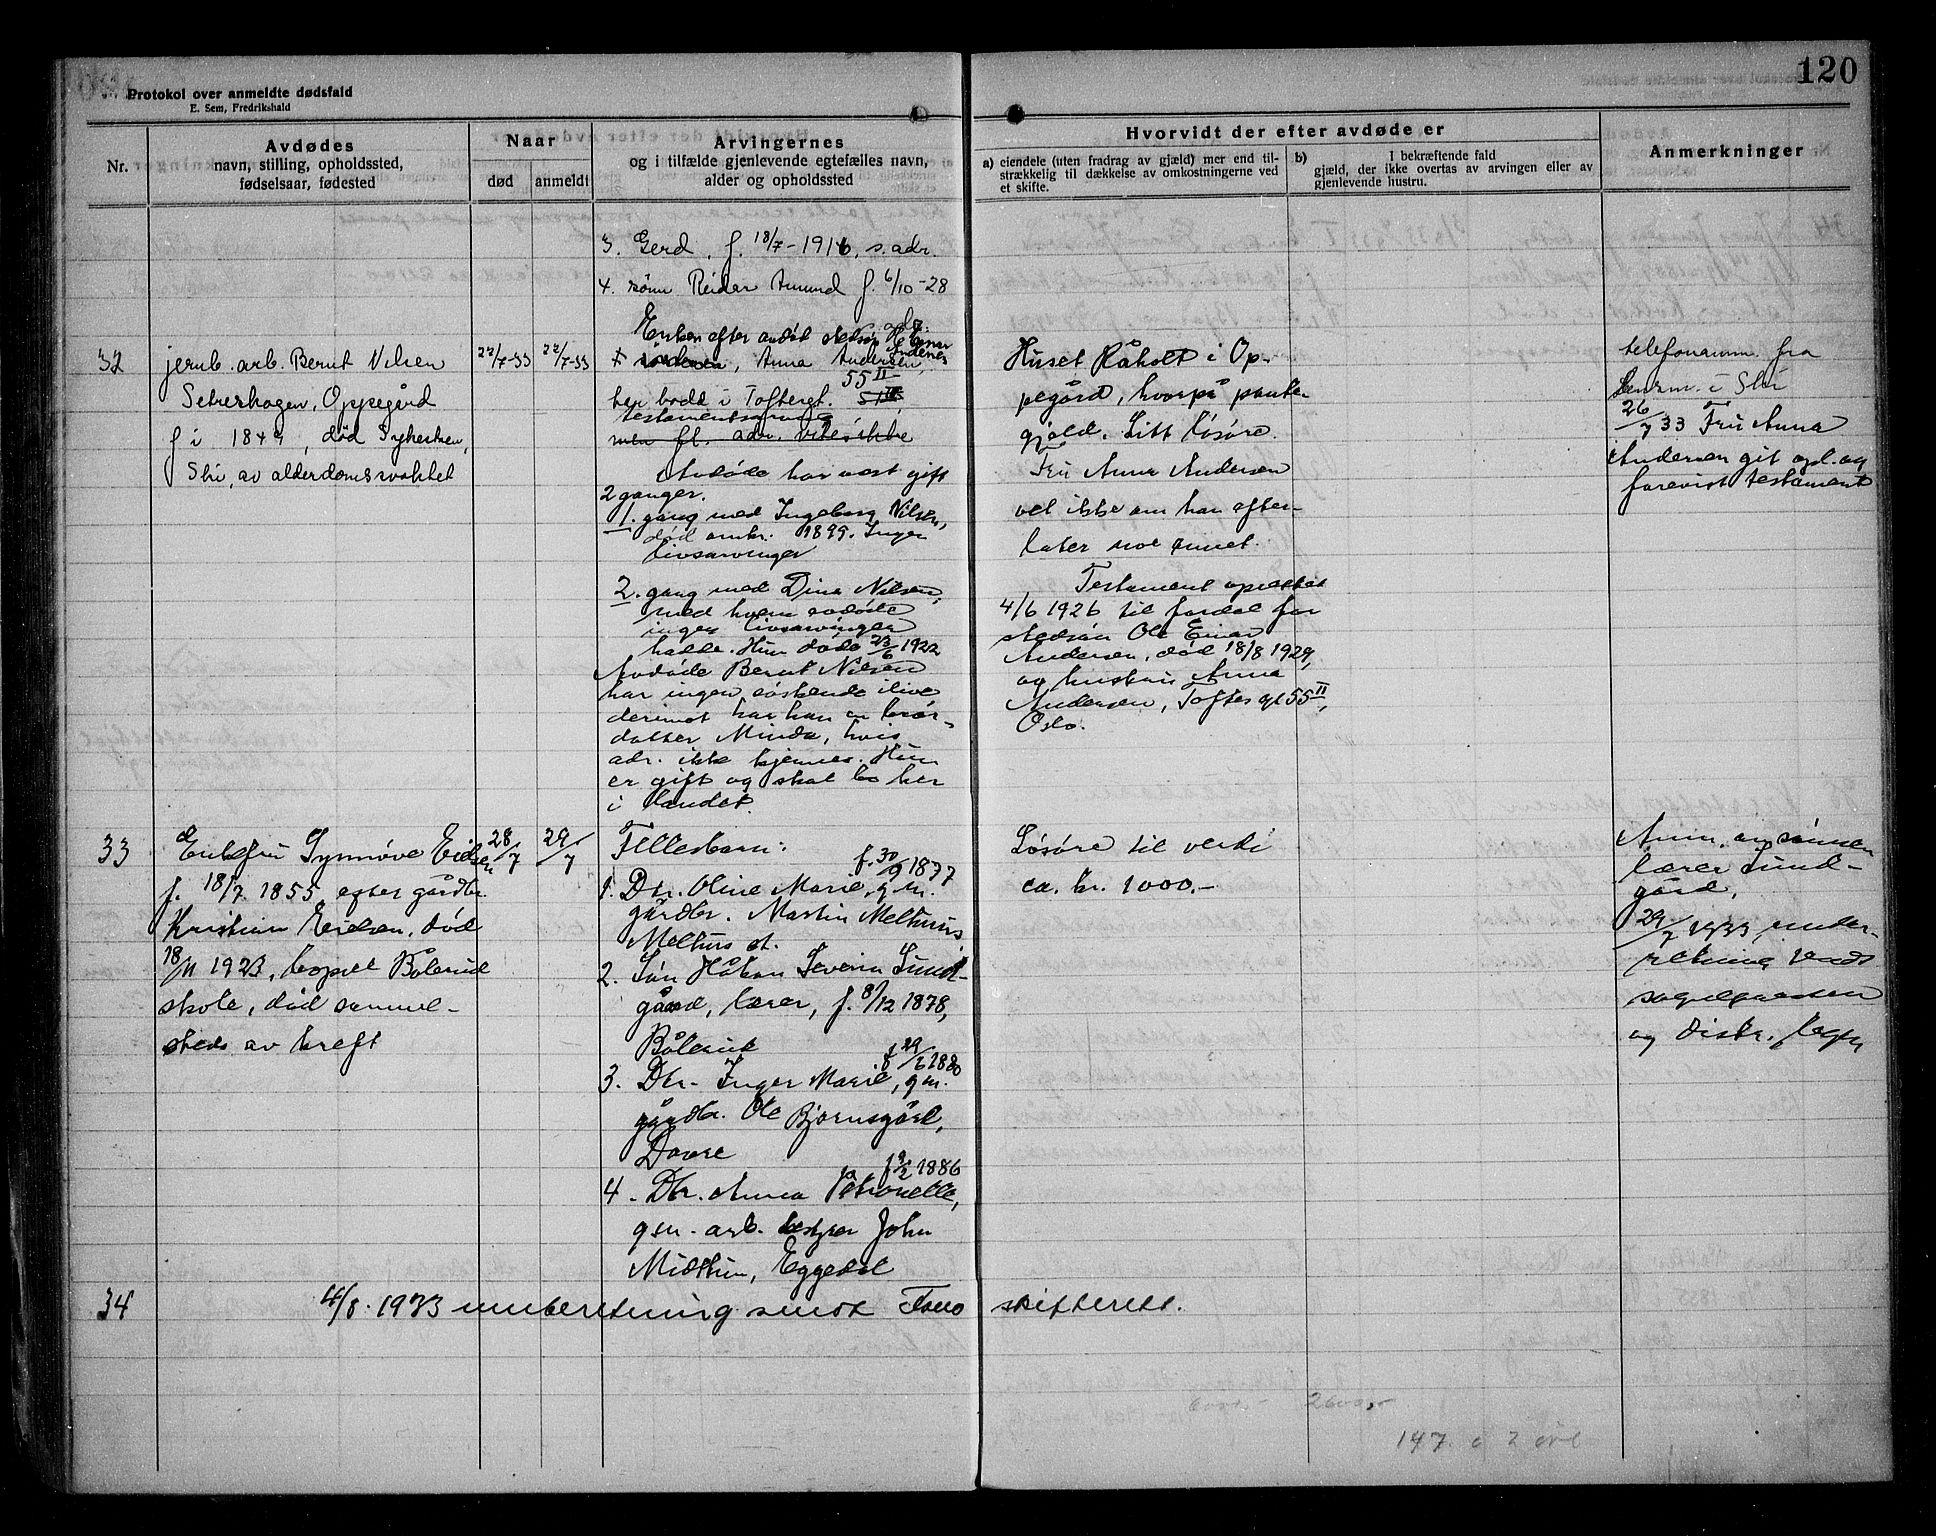 120
Protokol over anmeldte dødsfald
E. Sem, Fredrikshald
Nr.
Avdødes
navn, stilling, opholdssted,
fødselsaar, fødested
Naar
død
anmeldt
Arvingernes
og i tilfælde gjenlevende egtefælles navn,
alder og opholdssted
Hvorvidt der efter avdøde er
a) eiendele (uten fradrag av gjæld) mer end til-
strækkelig til dækkelse av omkostningerne ved
et skifte.
b) I bekræftende fald
gjæld, der ikke overtas av arvingen eller av
gjenlevende hustru.
Anmerkninger
3. Gerd, f. 18/7-1916, s. adr.
4. sønn Reidar Amund f. 6/10-28
s. adr.
32
jernb. arb. Bernt Nilsen
Seterskogen, Oppegård
f i 1849, død Sykestuen,
Ski, av alderdomssvakhet
22/7-33
22/7-33
Enken efter avdød stedsøn O. Einar
Andersen
Anna Andersen,
55 II
her bodd i Toftesgt. 51 III
testamentsarving
men fl. adr. vites ikke
Avdøde har vært gift
2 ganger.
1. gang med Ingeborg Nilsen,
død omkr. 1899. Ingen
livsarvinger
2. gang med Dina Nilsen,
med hvem avdøde
ingen livsarvinger
hadde. Hun døde 23/6 1922
Avdøde Bernt Nilsen
har ingen søskende ilive
derimot har han en bror-
datter Minda, hvis
adr. ikke kjennes. Hun
er gift og skal bo her
i landet.
Huset Råholt i Op-
pegård, hvorpå pante-
gjæld. Litt løsøre.
Fru Anna Andersen
vet ikke om han efter-
later noe annet.
Testament oprettet
4/6 1926 til fordel for
stedsøn Ole Einar
Andersen, død 18/8 1929,
og hustru Anna
Andersen, Toftes gt 55 II,
Oslo.
telefonanm. fra
Lensm. i Ski
26/7 33 Fru Anna
Andersen git opl. og
forevist testament
33
Enkefru Synnøve Eidsen
f. 18/7 1855 efter gårdbr.
Kristian Eidsen, død
18/11 1923, bopæl Bålerud
skole, død sammel-
steds av kreft
28/7
29/7
Fellesbarn:
f. 30/9 1877
1. Dtr. Oline Marie, g.m.
gårdbr. Martin Melhus,
Melhus st.
2. Søn Håkon Severin Sund-
gård, lærer, f. 8/12 1878,
Bålerud
f 29/6 1880
3. Dtr. Inger Marie, g m.
gårdbr. Ole Bjørnsgård,
Dovre
f 9/2 1886
4. Dtr. Anna Petronelle,
g m. arb. bestyrer John
Midthun, Eggedal
Løsøre til verdi
ca. kr. 1000.-
Anm. av sønnen
lærer Sund-
gård,
29/7 1933, under-
retning sendt
sognepresten
og distr. legen
34
4/8. 1933 innberetning sendt Follo skifterett.
2600,-
147. à 2 øre